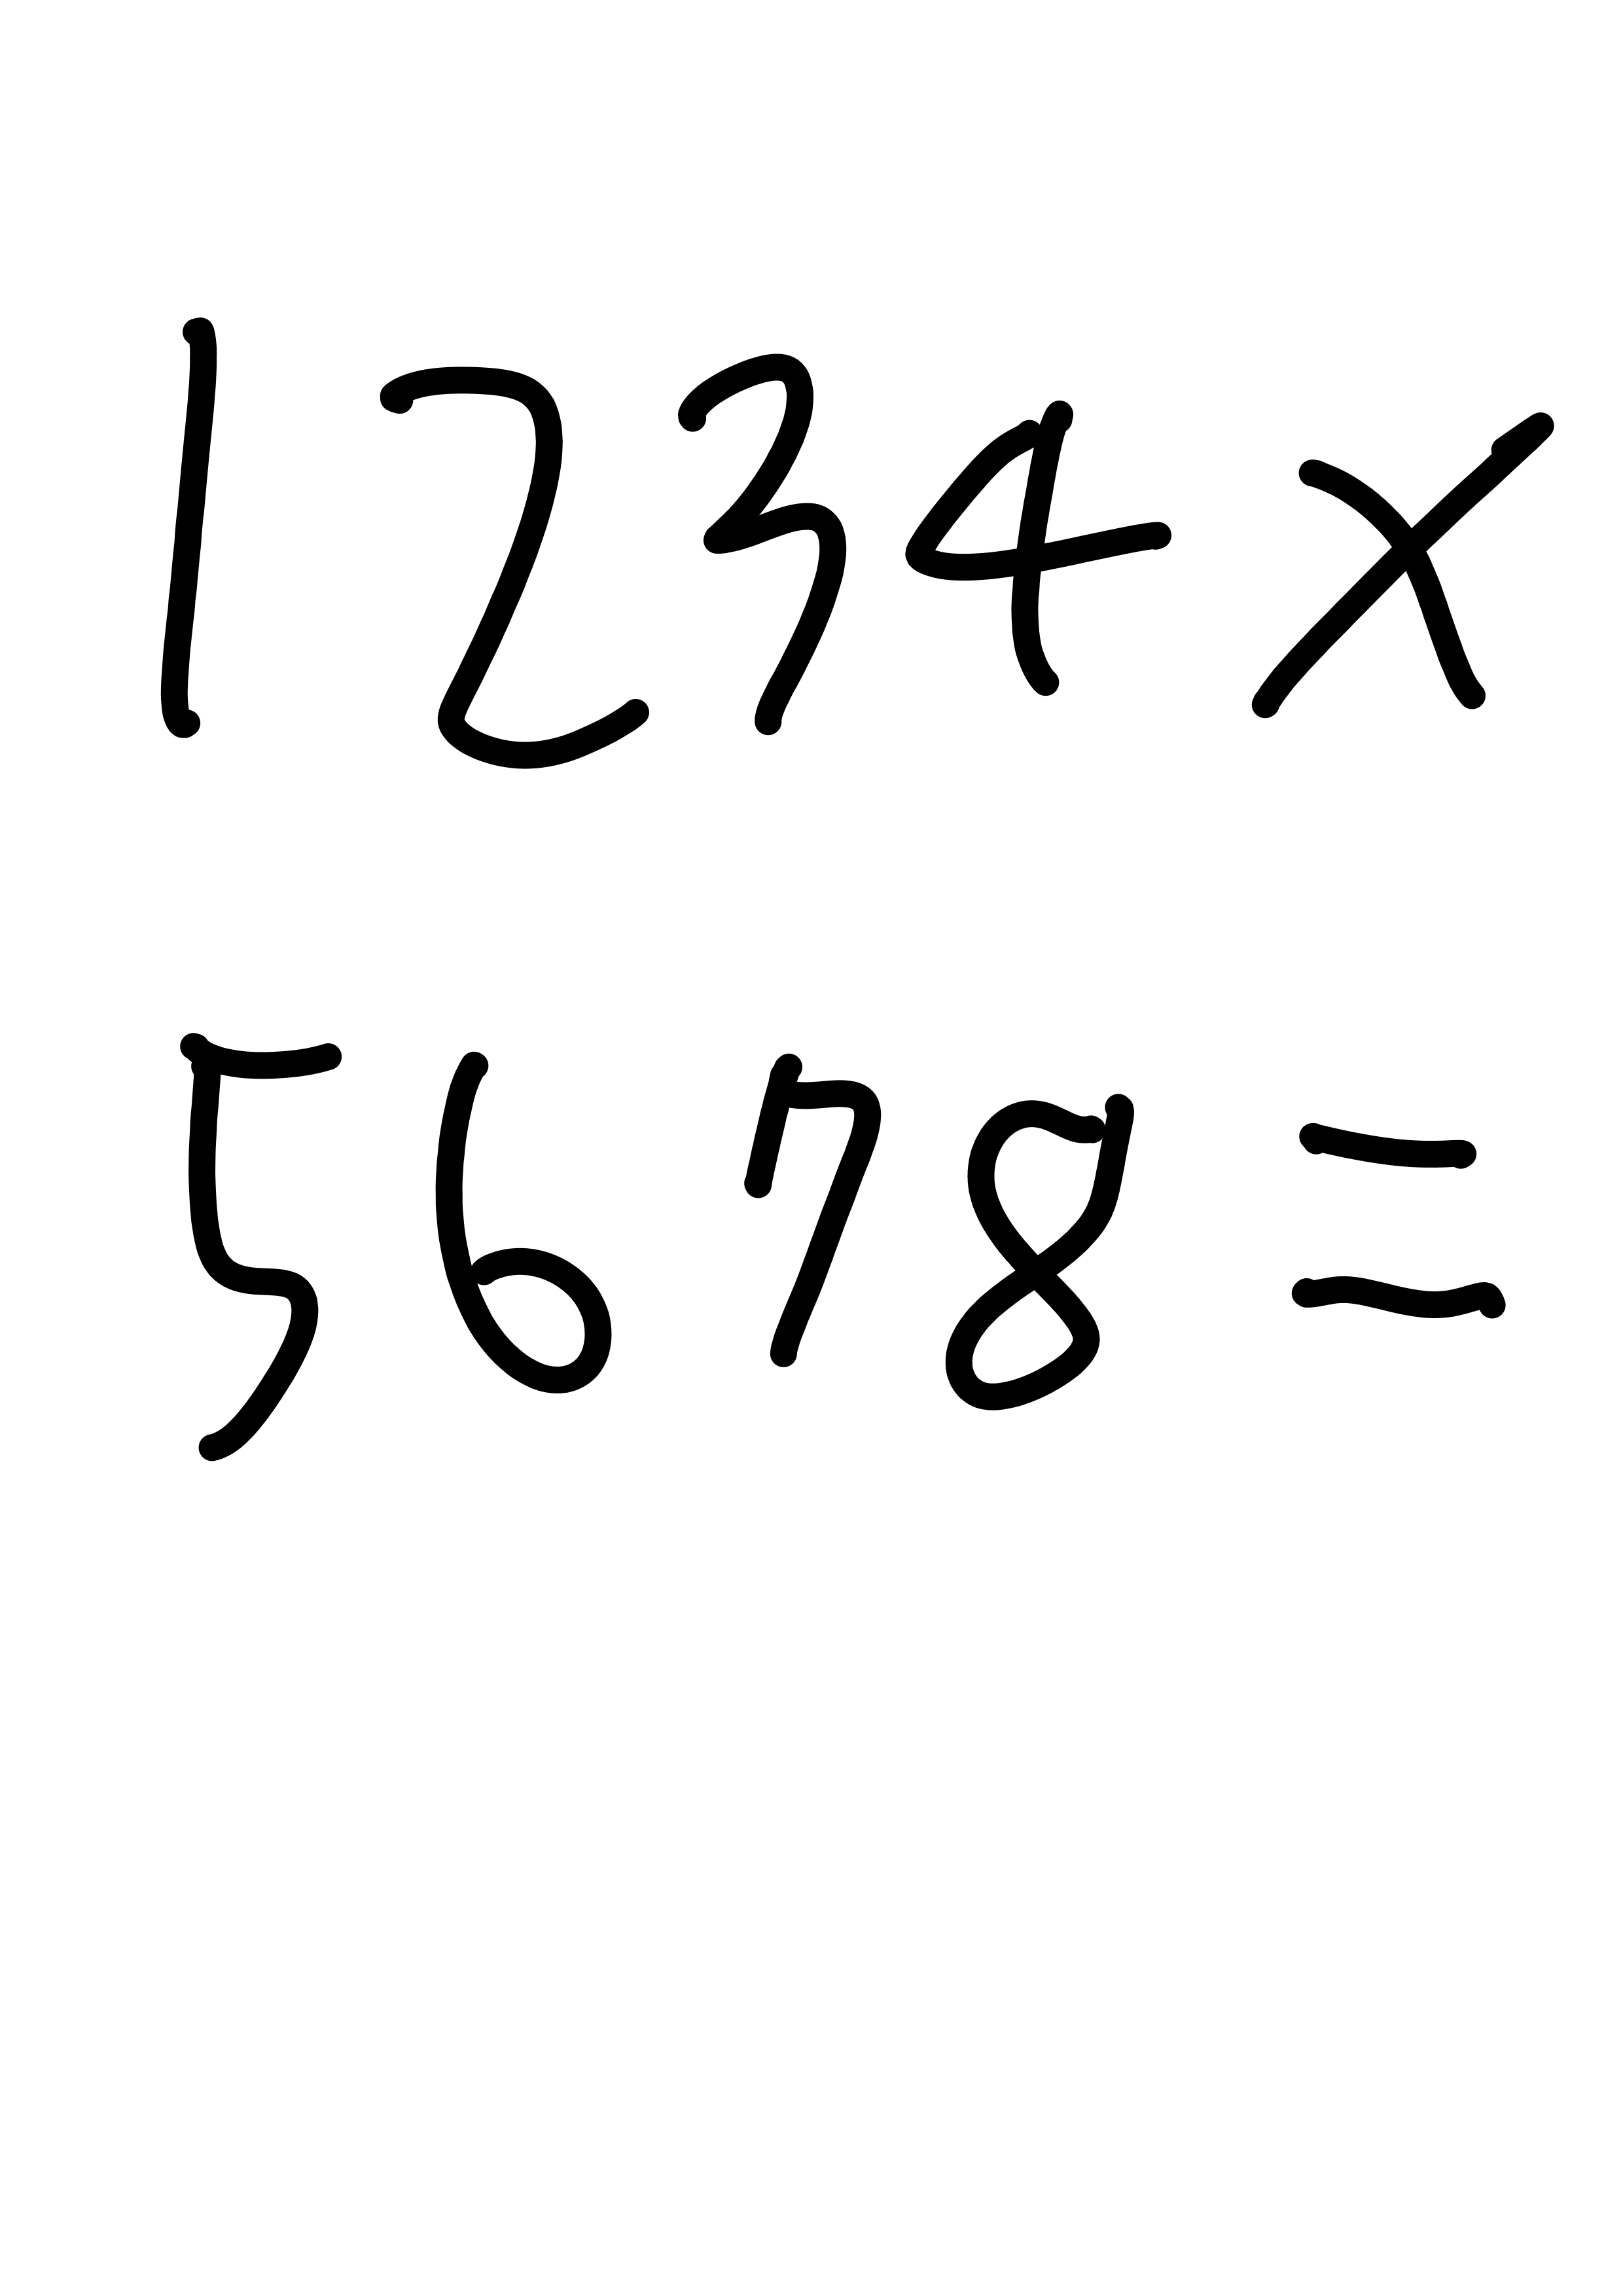 1234×
5678=